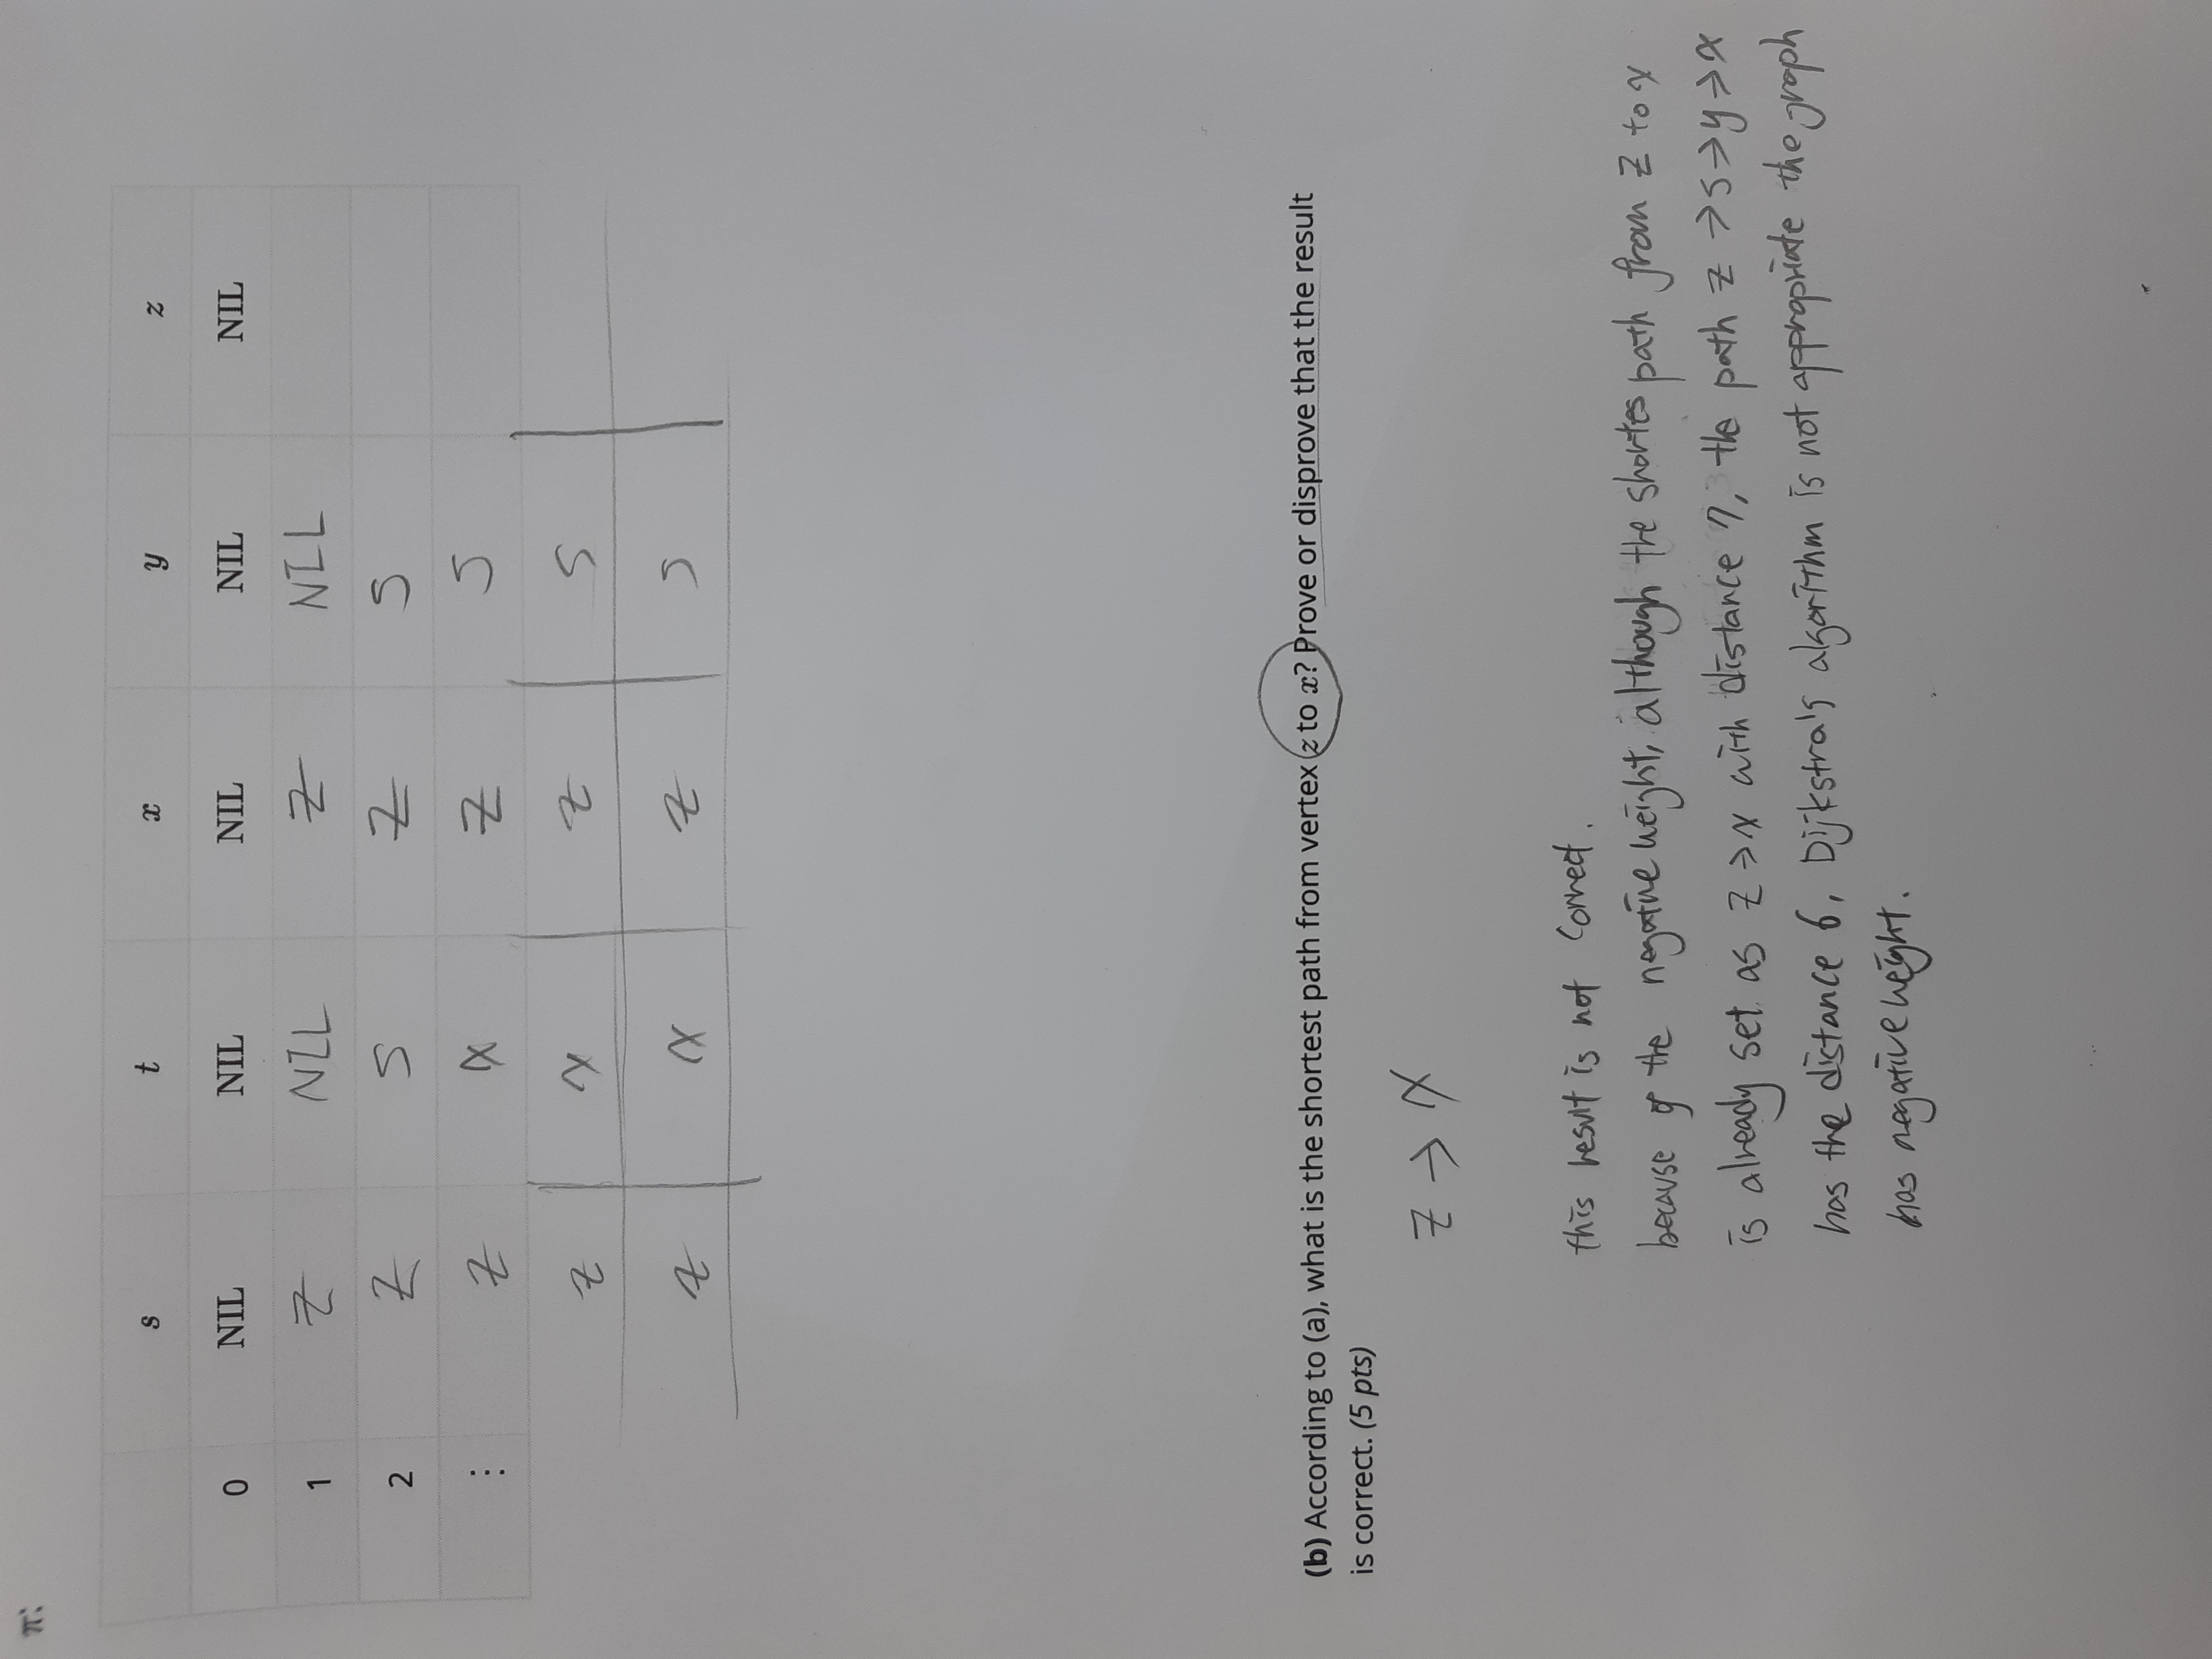 π:
s t x y z
0 NIL NIL NIL NIL NIL
1 z NIL z NIL
2 z s z s
⋮ z x z s
z x z s
z x z s
(b) According to (a), what is the shortest path from vertex z to x? Prove or disprove that the result
is correct. (5 pts)
z → x
this result is not correct.
because of the negative weight, although the shortes path from z to x
is already set as z → x with distance 7, the path z → s → y → x
has the distance 6, Dijkstra's algorithm is not appropriate the graph
has negative weight.